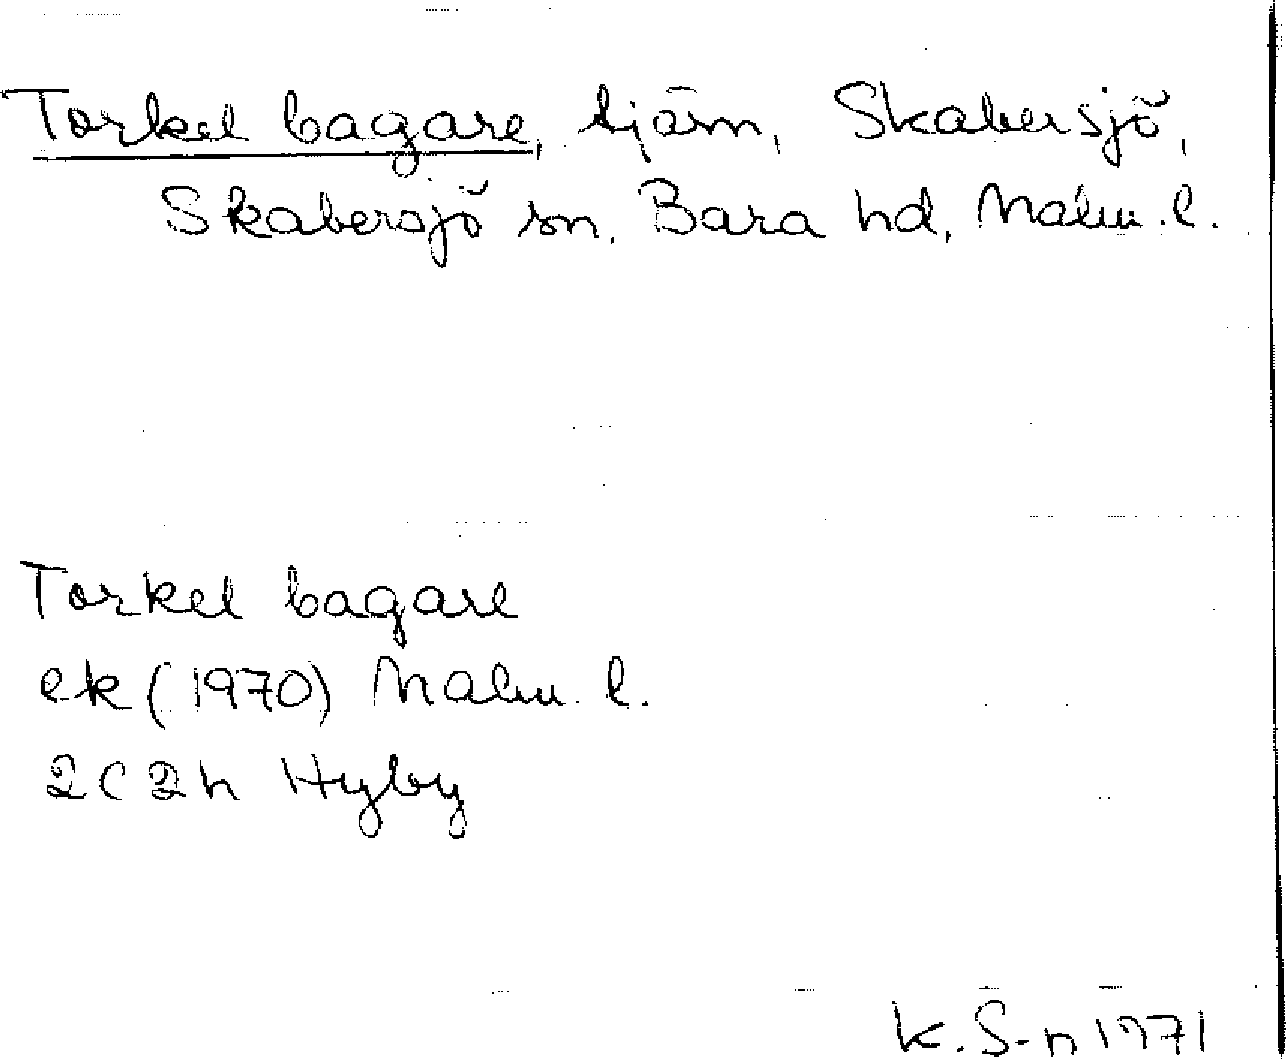 Torkel bagare, tjärn, Skabersjö,
Skabersjö sn, Bara hd, Malm. l.
Torkel bagare
ek (1970) Malm. l.
2C 2h Hyby
K. S-n 1971